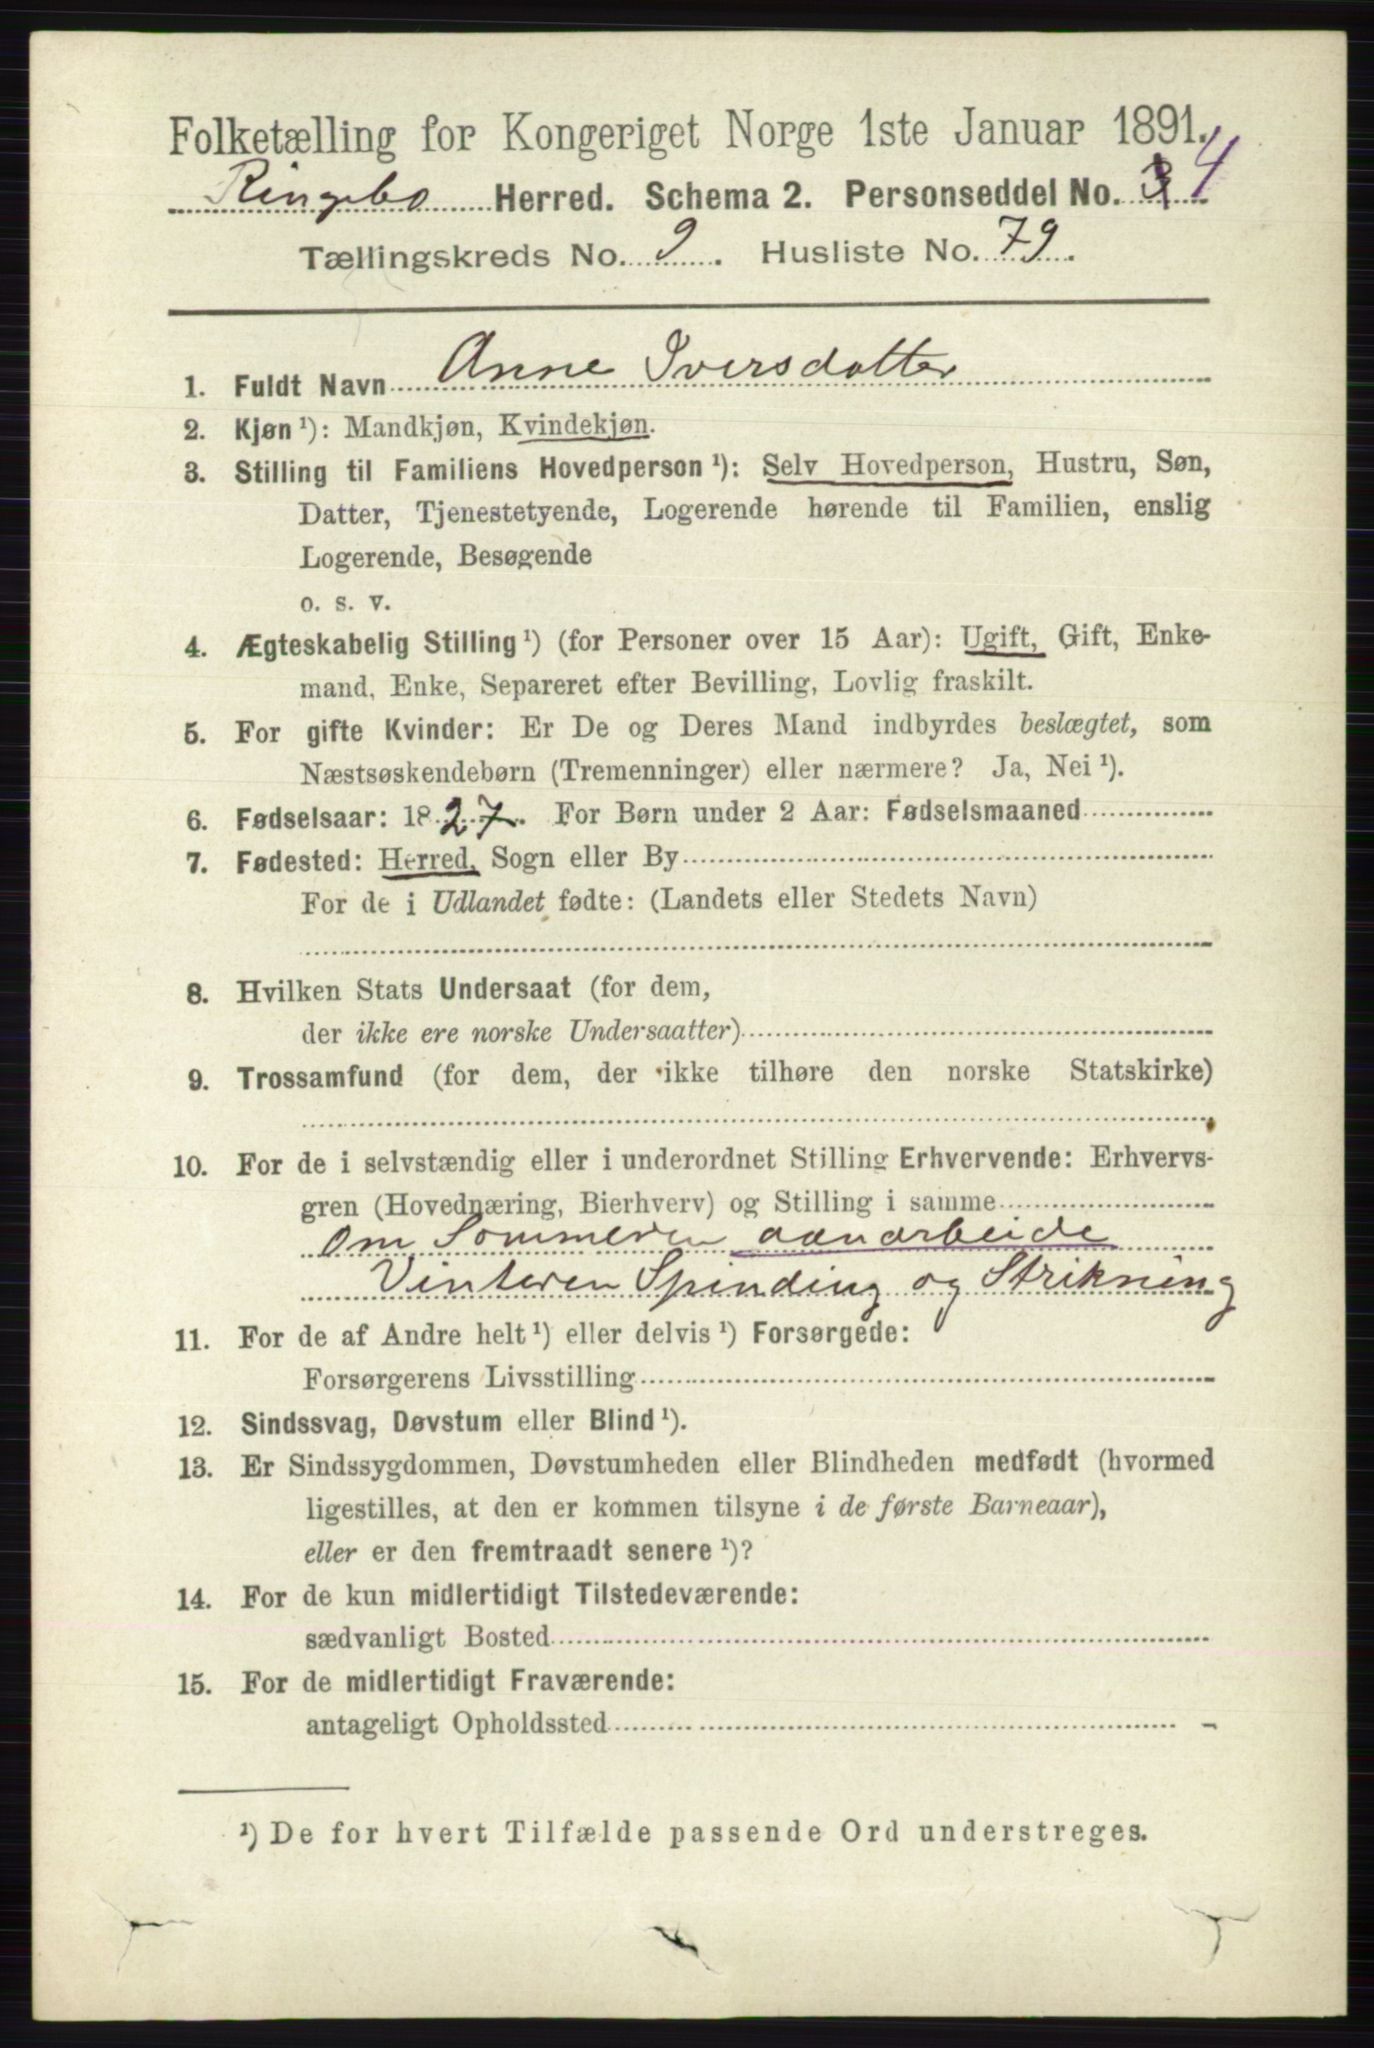 Folketælling for Kongeriget Norge 1ste Januar 1891.
Ringebo Herred. Schema 2. Personseddel No. 3 4
Tællingskreds No. 9. Husliste No. 79.
1. Fuldt Navn Anne Iversdatter
2. Kjøn ¹): Mandkjøn, Kvindekjøn.
3. Stilling til Familiens Hovedperson ¹): Selv Hovedperson, Hustru, Søn,
Datter, Tjenestetyende, Logerende hørende til Familien, enslig
Logerende, Besøgende
o. s. v.
4. Ægteskabelig Stilling ¹) (for Personer over 15 Aar): Ugift, Gift, Enke-
mand, Enke, Separeret efter Bevilling, Lovlig fraskilt.
5. For gifte Kvinder: Er De og Deres Mand indbyrdes beslægtet, som
Næstsøskendebørn (Tremenninger) eller nærmere? Ja, Nei ¹).
6. Fødselsaar: 1827. For Børn under 2 Aar: Fødselsmaaned
7. Fødested: Herred, Sogn eller By
For de i Udlandet fødte: (Landets eller Stedets Navn)
8. Hvilken Stats Undersaat (for dem,
der ikke ere norske Undersaatter)
9. Trossamfund (for dem, der ikke tilhøre den norske Statskirke)
10. For de i selvstændig eller i underordnet Stilling Erhvervende: Erhvervs-
gren (Hovednæring, Bierhverv) og Stilling i samme
om Sommeren aanarbeide
Vinteren Spinding og Strikning
11. For de af Andre helt ¹) eller delvis ¹) Forsørgede:
Forsørgerens Livsstilling
12. Sindssvag, Døvstum eller Blind ¹).
13. Er Sindssygdommen, Døvstumheden eller Blindheden medfødt (hvormed
ligestilles, at den er kommen tilsyne i de første Barneaar),
eller er den fremtraadt senere ¹)?
14. For de kun midlertidigt Tilstedeværende:
sædvanligt Bosted
15. For de midlertidigt Fraværende:
antageligt Opholdssted
¹) De for hvert Tilfælde passende Ord understreges.